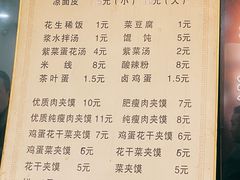 凉面皮 5元(小) 10元(大)
花生稀饭 1元 菜豆腐 1元
浆水拌汤 1元 馄饨 5元
紫菜蛋花汤 5元 紫菜汤 2元
米线 8元 酸辣粉 8元
茶叶蛋 1.5元 卤鸡蛋 1.5元
优质肉夹馍 10元 肥瘦肉夹馍 7元
优质纯瘦肉夹馍 11元 纯瘦肉夹馍 8元
鸡蛋花干菜夹馍 7元 鸡蛋花干夹馍 6元
鸡蛋菜夹馍 5元 花干菜夹馍 6元
花干夹馍 5元 菜夹馍 4元